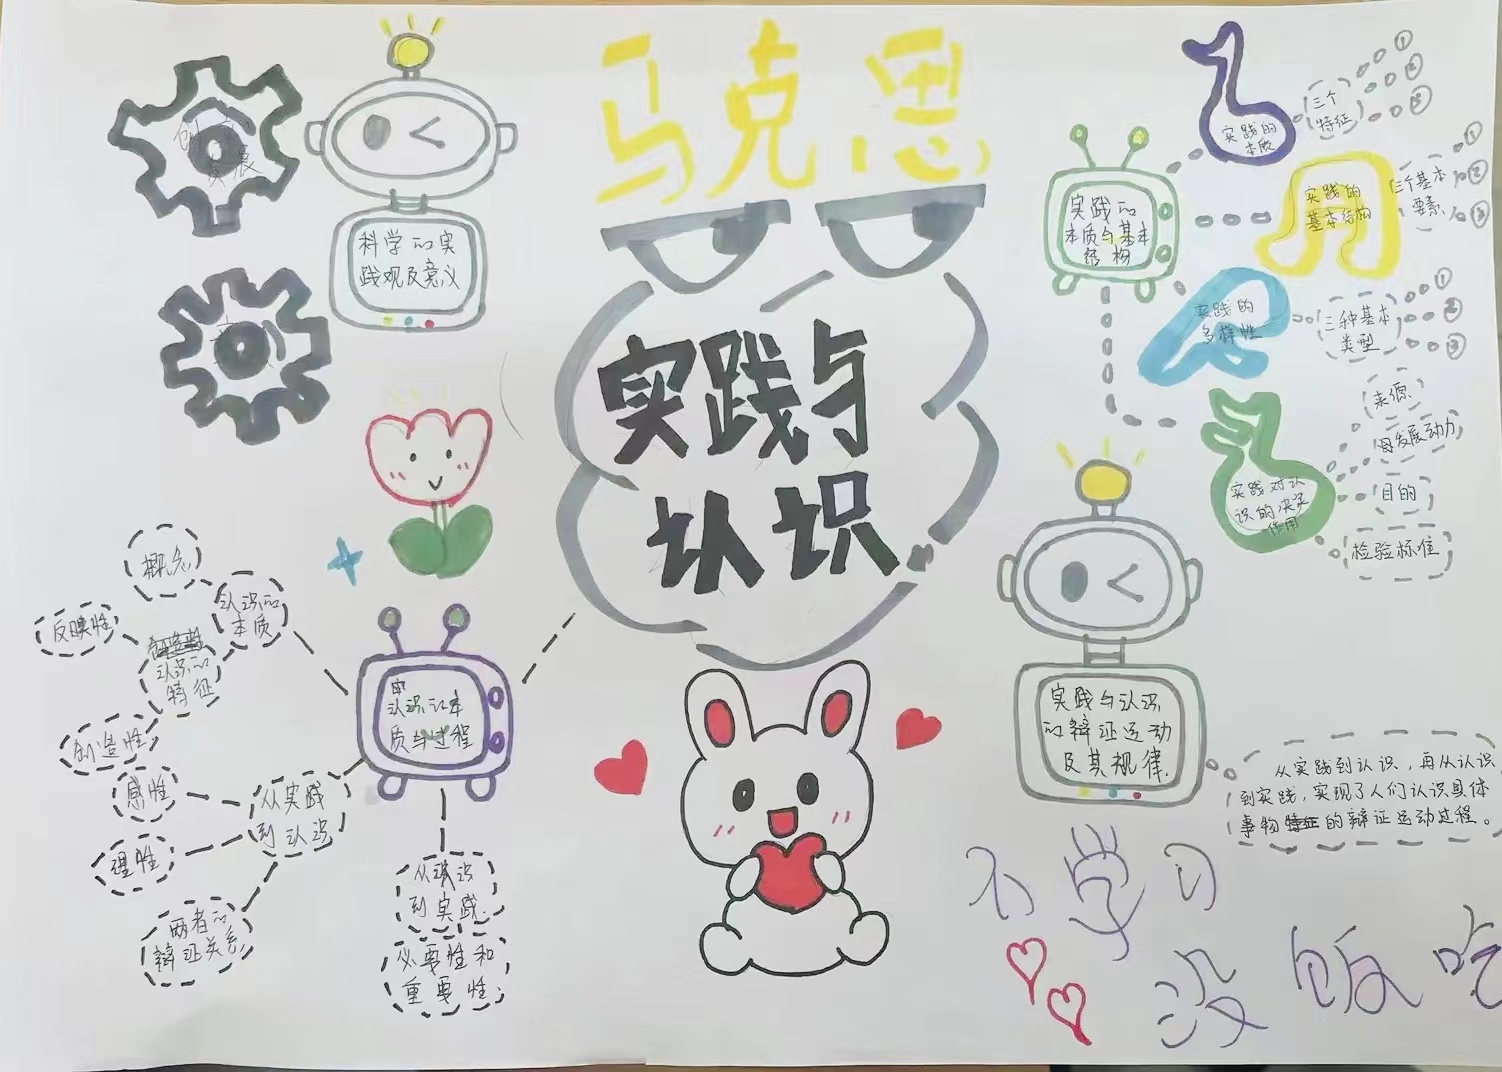 马克思
实践与
认识
科学的实
践观及意义
实践的
本质与基本
结构
实践的
本质
三个
特征
①
②
③
实践的
基本结构
三个基本
要素
①
②
③
实践的
多样性
三种基本
类型
①
②
③
实践对认
识的决定
作用
来源
发展动力
目的
检验标准
认识的本
质与过程
认识的
本质
概念
认识的
特征
反映性
创造性
从实践
到认识
感性
理性
两者的
辩证关系
从认识
到实践
必要性和
重要性
实践与认识
的辩证运动
及其规律
从实践到认识，再从认识
到实践，实现了人们认识具体
事物的辩证运动过程。
不学习
没饭吃